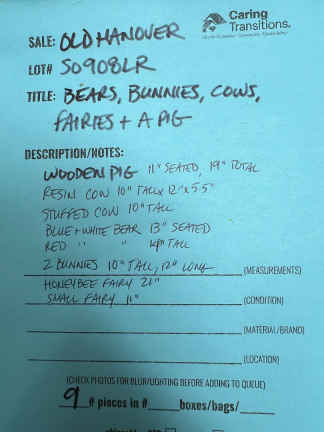 Caring
Transitions.
SALE: OLD HANOVER
LOT# S0908LR
TITLE: BEARS, BUNNIES, COWS,
FAIRIES + A PIG
DESCRIPTION/NOTES:
WOODEN PIG 11" SEATED, 19" TOTAL
RESIN COW 10" TALL X 12" X 5.5"
STUFFED COW 10" TALL
BLUE + WHITE BEAR 13" SEATED
RED " " TALL
2 BUNNIES 10" TALL, 12" LONG
(MEASUREMENTS)
HONEYBEE FAIRY 21"
SMALL FAIRY 11"
(CONDITION)
(MATERIAL/BRAND)
(LOCATION)
(CHECK PHOTOS FOR BLUR/LIGHTING BEFORE ADDING TO QUEUE)
9 # pieces in # boxes/bags/